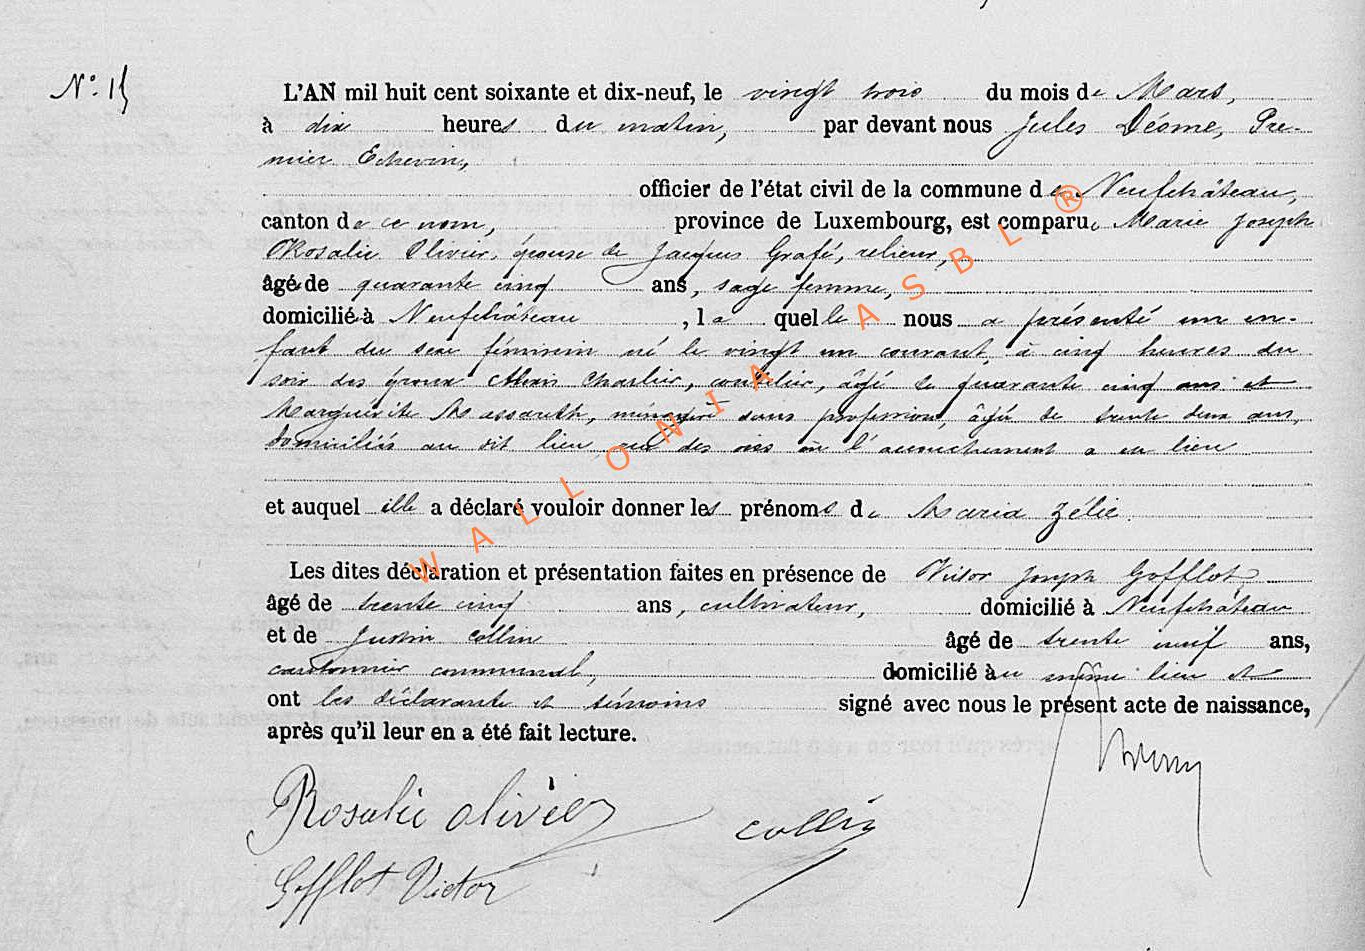 N° 15
L'AN mil huit cent soixante et dix-neuf, le vingt trois du mois de Mars,
à dix heures du matin, par devant nous Jules Désme, Pre-
mier Echevin,
officier de l'état civil de la commune de Neufchâteau,
canton de ce nom, province de Luxembourg, est comparue Marie Joseph
Rosalie Olivier, épouse de Jacques Grafé, relieur,
âgée de quarante cinq ans, sage femme,
domiciliée à Neufchâteau, la quelle nous a présenté un en-
fant du sexe féminin né le vingt un courant, à cinq heures du
soir des époux Charlier, âgé de quarante cinq ans et
Marguerite Massareth, sans profession, âgée de trente deux ans,
domiciliés au dit lieu, rue des où l'accouchement a eu lieu
et auquel elle a déclaré vouloir donner les prénoms de Maria Zélie.
Les dites déclaration et présentation faites en présence de Victor Joseph Gofflot,
âgé de trente cinq ans, cultivateur, domicilié à Neufchâteau
et de Justin Collin âgé de trente neuf ans,
cantonnier communal, domicilié au même lieu et
ont les déclarante et témoins signé avec nous le présent acte de naissance,
après qu'il leur en a été fait lecture.
Rosalie Olivier
Collin
Gofflot Victor
WALLONIA ASBL ®